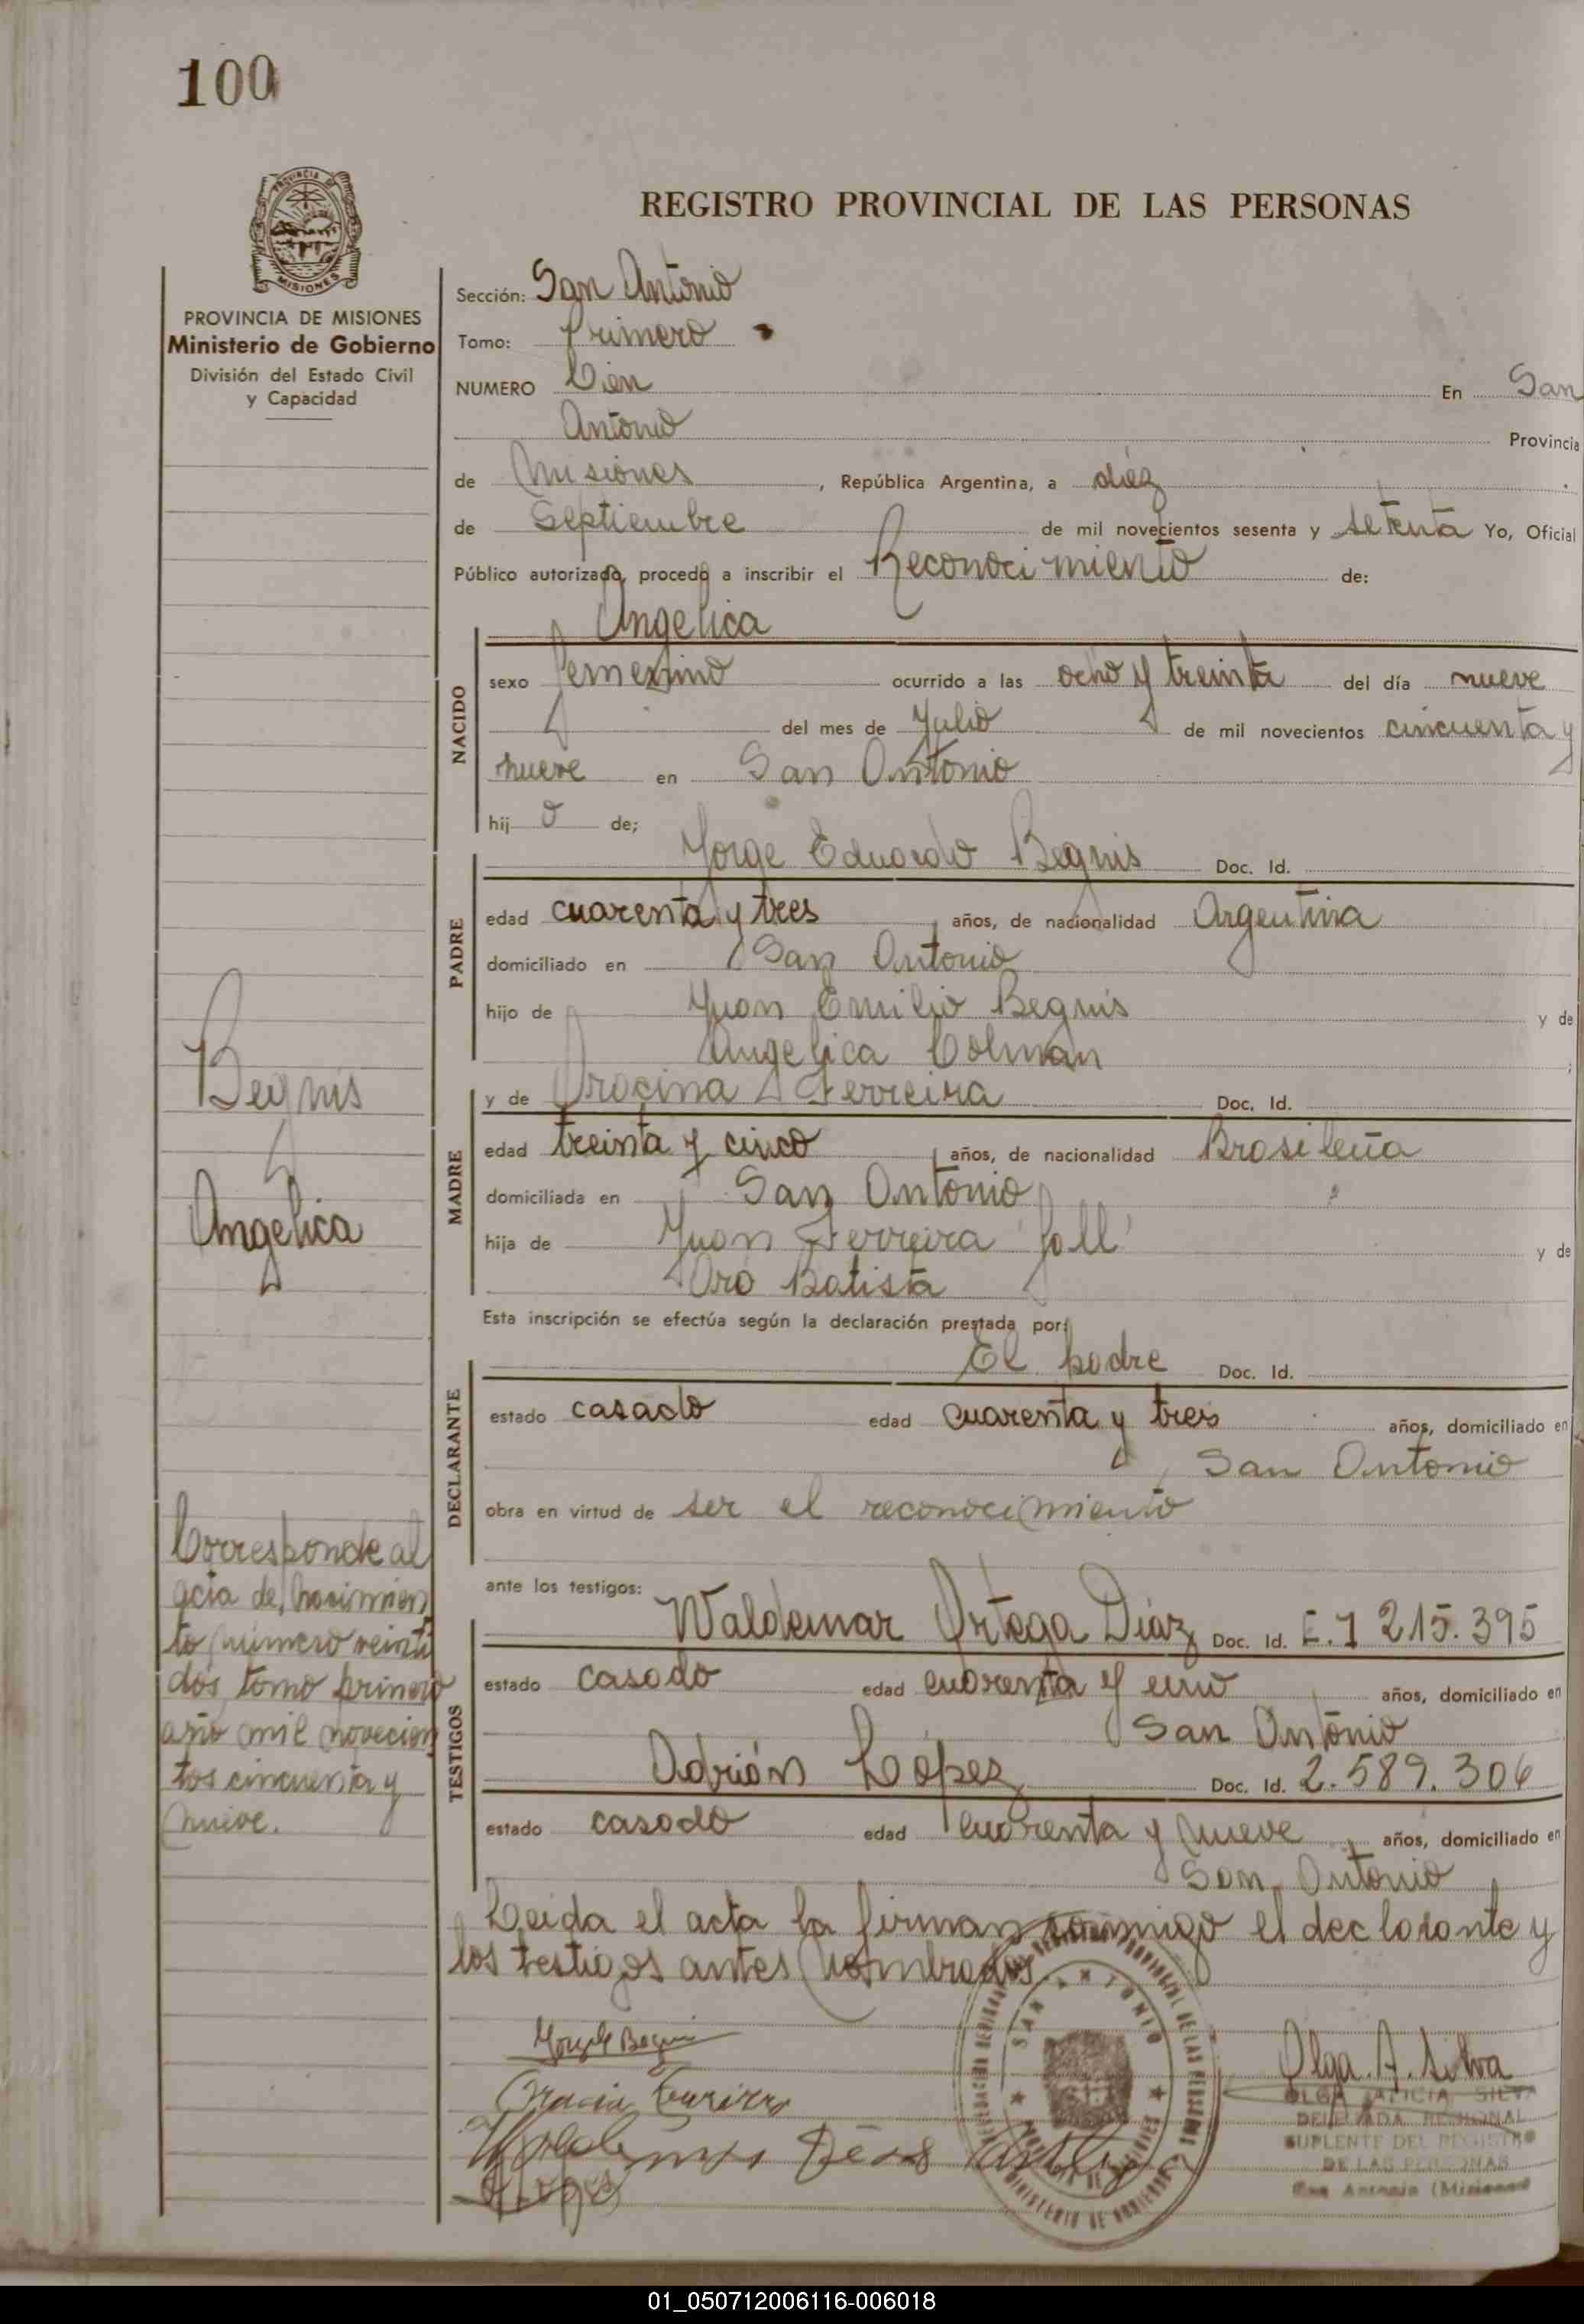 100
PROVINCIA DE
MISIONES
PROVINCIA DE MISIONES
Ministerio de Gobierno
División del Estado Civil
y Capacidad
REGISTRO PROVINCIAL DE LAS PERSONAS
Sección: San Antonio
Tomo: Primero
NUMERO Cien En San
Antonio Provincia
de Misiones, República Argentina, a diéz
de Septiembre de mil novecientos sesenta y setenta Yo, Oficial
Público autorizado, procedo a inscribir el Reconocimiento de:
NACIDO
Angelica
sexo femenino ocurrido a las ocho y treinta del día nueve
del mes de Julio de mil novecientos cincuenta y
nueve en San Antonio
hij o de;
PADRE
Jorge Eduardo Begnis Doc. Id.
edad cuarenta y tres años, de nacionalidad Argentina
domiciliado en San Antonio
hijo de Juan Emilio Begnis y de
Angelica Colman
MADRE
y de Orocina Ferreira Doc. Id.
edad treinta y cinco años, de nacionalidad Brasileña
domiciliada en San Antonio
hija de Juan Ferreira fall y de
Oro Batista
Esta inscripción se efectúa según la declaración prestada por:
DECLARANTE
El padre Doc. Id.
estado casado edad cuarenta y tres años, domiciliado en
San Antonio
obra en virtud de ser el reconocimiento
ante los testigos:
TESTIGOS
Waldemar Ortega Díaz Doc. Id. E.1 215.395
estado casado edad cuarenta y uno años, domiciliado en
San Antonio
Adrián López Doc. Id. 2.589.306
estado casado edad cuarenta y nueve años, domiciliado en
San Antonio
Leida el acta la firman conmigo el declarante y
los testigos antes nombrados
Begnis
Angelica
Corresponde al
acta de nacimien
to número veinti
dós tomo primero
año mil novecien
tos cincuenta y
nueve.
SAN ANTONIO
Olga A. Silva
OLGA ALICIA SILVA
DELEGADA REGIONAL
SUPLENTE DEL REGISTRO
DE LAS PERSONAS
San Antonio (Misiones)
01_050712006116-006018